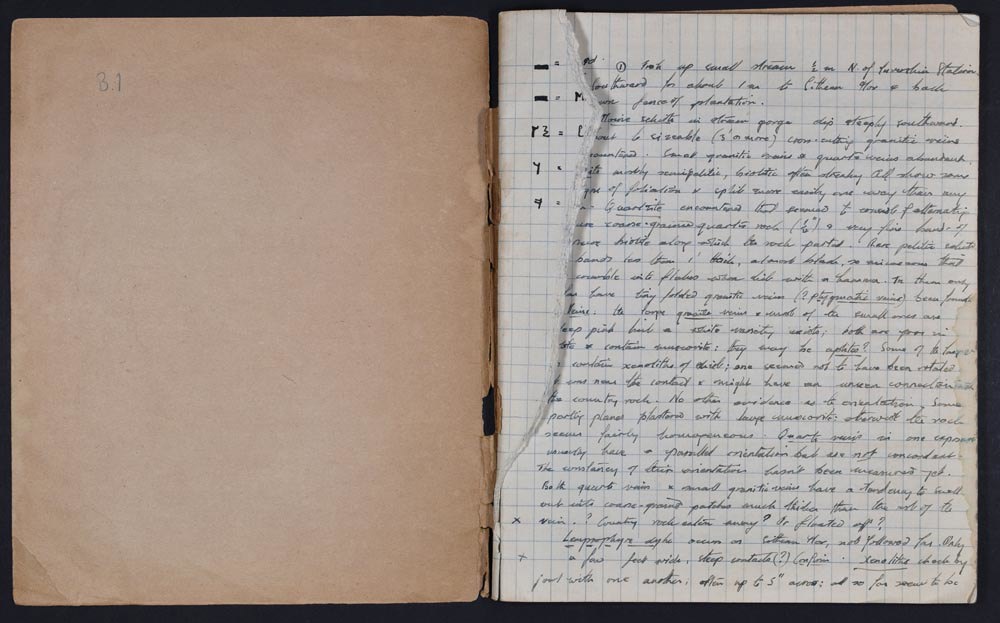 B.1
① Took up small stream ½ m N. of Invershin Station
Southward for about 1 m to & back
fence of plantation.
Moine schists in stream gorge dip steeply southward.
to sizeable (3' or more) cross-cutting granitic veins
encountered. Small granitic veins & quartz veins abundant.
mostly semipelitic, biotite often streaky. All show some
of foliation & split more easily one way than any
Quartzite encountered that seemed to consist of alternating
coarse-grained quartz rock (½") & very fine bands of
biotite along which the rock parted. Rare pelitic schist
bands less than 1' thick, almost black, so micaceous that
crumble into flakes when hit with a hammer. In them only
have tiny folded granitic veins (? ptygmatic veins) been found
veins: the large granite veins & most of the small ones are
deep pink but a white variety exists; both are poor in
& contain muscovite: they may be aplites? Some of the larger
contain xenoliths of schist; one seemed not to have been rotated
was near the contact & might have an unseen connection
the country rock. No other evidence as to orientation. Some
parting planes plastered with large muscovite: otherwise the rock
seems fairly homogeneous. Quartz veins in one exposure
usually have a parallel orientation but are not concordant.
The constancy of their orientation hasn't been measured yet.
Both quartz veins & small granitic veins have a tendency to swell
out into coarse-grained patches much thicker than the rest of the
x vein. ? Country rock eaten away? Or floated off?
Lamprophyre dyke occurs on, not followed far. Only
x a few feet wide, steep contacts (?) Confirm. xenoliths cheek by
jowl with one another; often up to 5" across; all so far seem to be